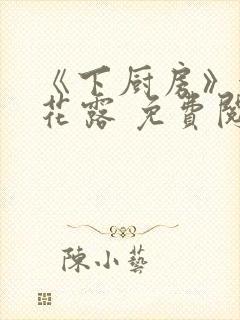 《下厨房》
花露 免費閱
陳小藝